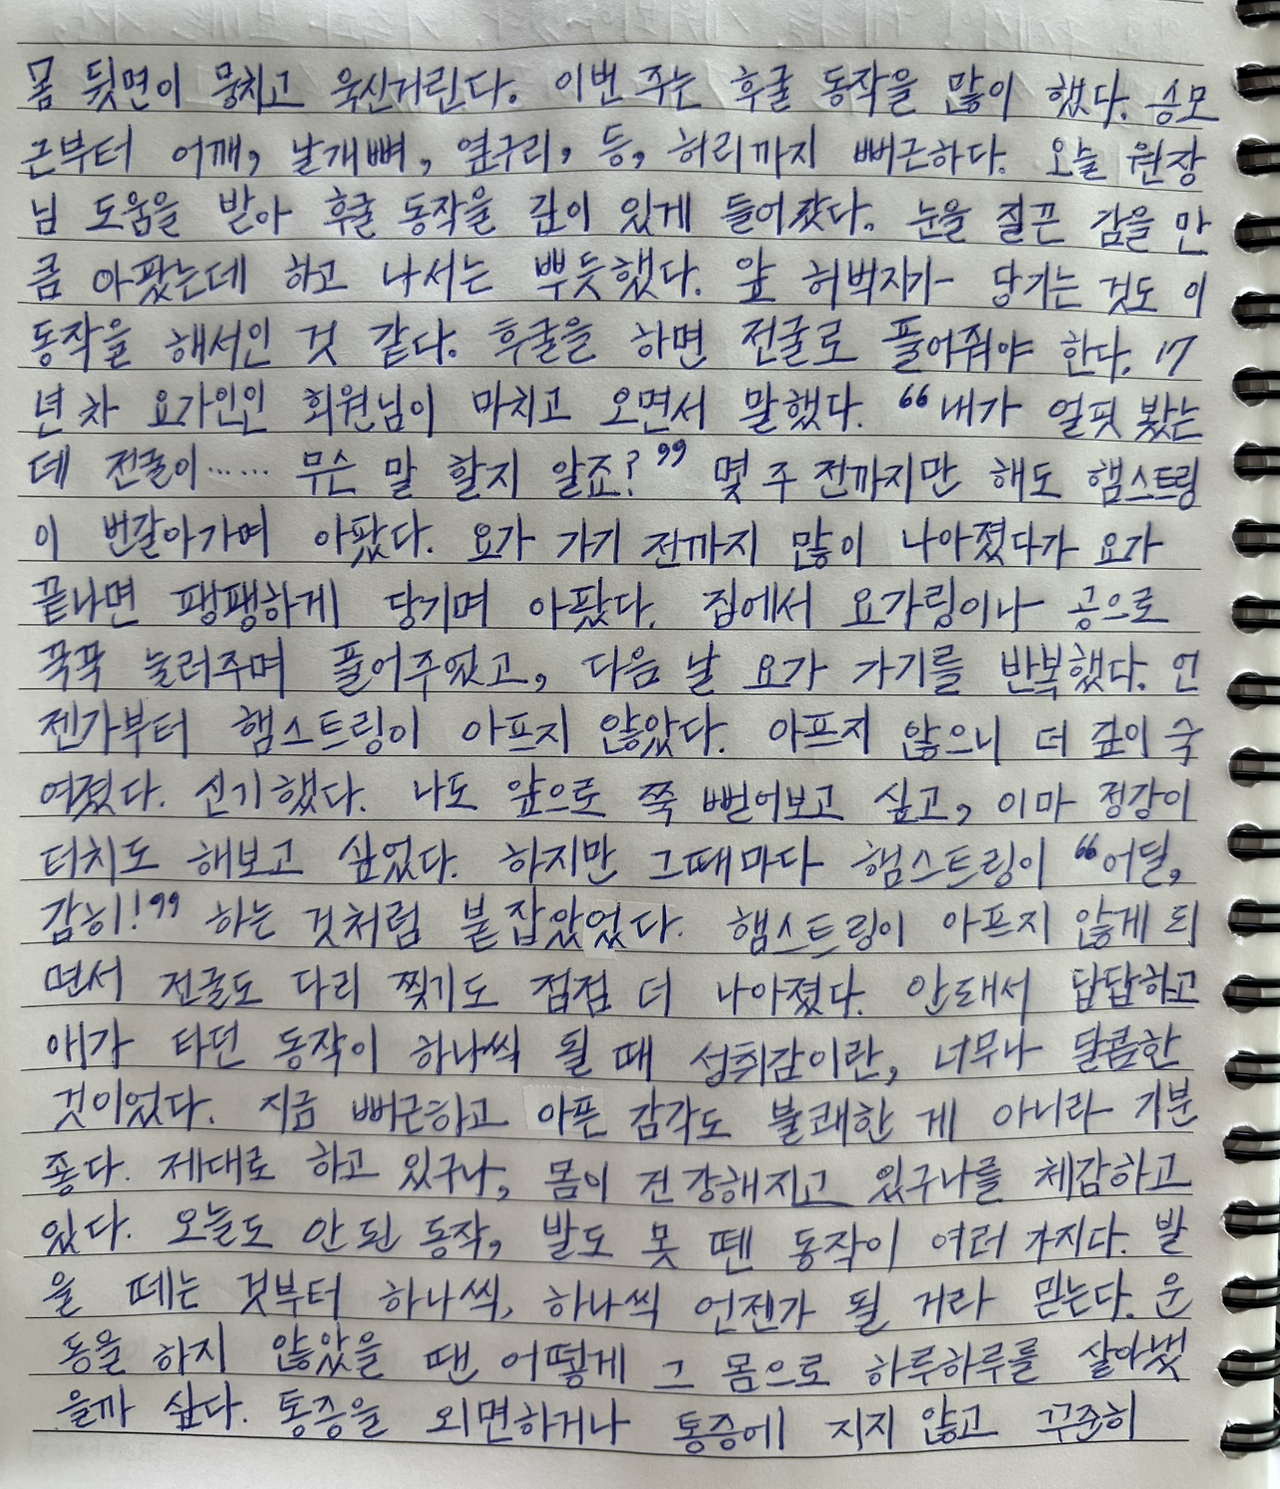 몸 뒷면이 뭉치고 욱신거린다. 이번 주는 후굴 동작을 많이 했다. 승모
근부터 어깨, 날개뼈, 옆구리, 등, 허리까지 뻐근하다. 오늘 원장
님 도움을 받아 후굴 동작을 깊이 있게 들어갔다. 눈을 질끈 감을 만
큼 아팠는데 하고 나서는 뿌듯했다. 앞 허벅지가 당기는 것도 이
동작을 해서인 것 같다. 후굴을 하면 전굴로 풀어줘야 한다. 17
년 차 요가인인 회원님이 마치고 오면서 말했다. “내가 얼핏 봤는
데 전굴이…… 무슨 말 할지 알죠?” 몇 주 전까지만 해도 햄스트링
이 번갈아가며 아팠다. 요가 가기 전까지 많이 나아졌다가 요가
끝나면 팽팽하게 당기며 아팠다. 집에서 요가링이나 공으로
꾹꾹 눌러주며 풀어주었고, 다음 날 요가 가기를 반복했다. 언
젠가부터 햄스트링이 아프지 않았다. 아프지 않으니 더 깊이 숙
여졌다. 신기했다. 나도 앞으로 쭉 뻗어보고 싶고, 이마 정강이
터치도 해보고 싶었다. 하지만 그때마다 햄스트링이 “어딜,
감히!” 하는 것처럼 붙잡았었다. 햄스트링이 아프지 않게 되
면서 전굴도 다리 찢기도 점점 더 나아졌다. 안돼서 답답하고
애가 타던 동작이 하나씩 될 때 성취감이란, 너무나 달콤한
것이었다. 지금 뻐근하고 아픈 감각도 불쾌한 게 아니라 기분
좋다. 제대로 하고 있구나, 몸이 건강해지고 있구나를 체감하고
있다. 오늘도 안 된 동작, 발도 못 뗀 동작이 여러 가지다. 발
을 떼는 것부터 하나씩, 하나씩 언젠가 될 거라 믿는다. 운
동을 하지 않았을 땐 어떻게 그 몸으로 하루하루를 살아냈
을까 싶다. 통증을 외면하거나 통증에 지지 않고 꾸준히